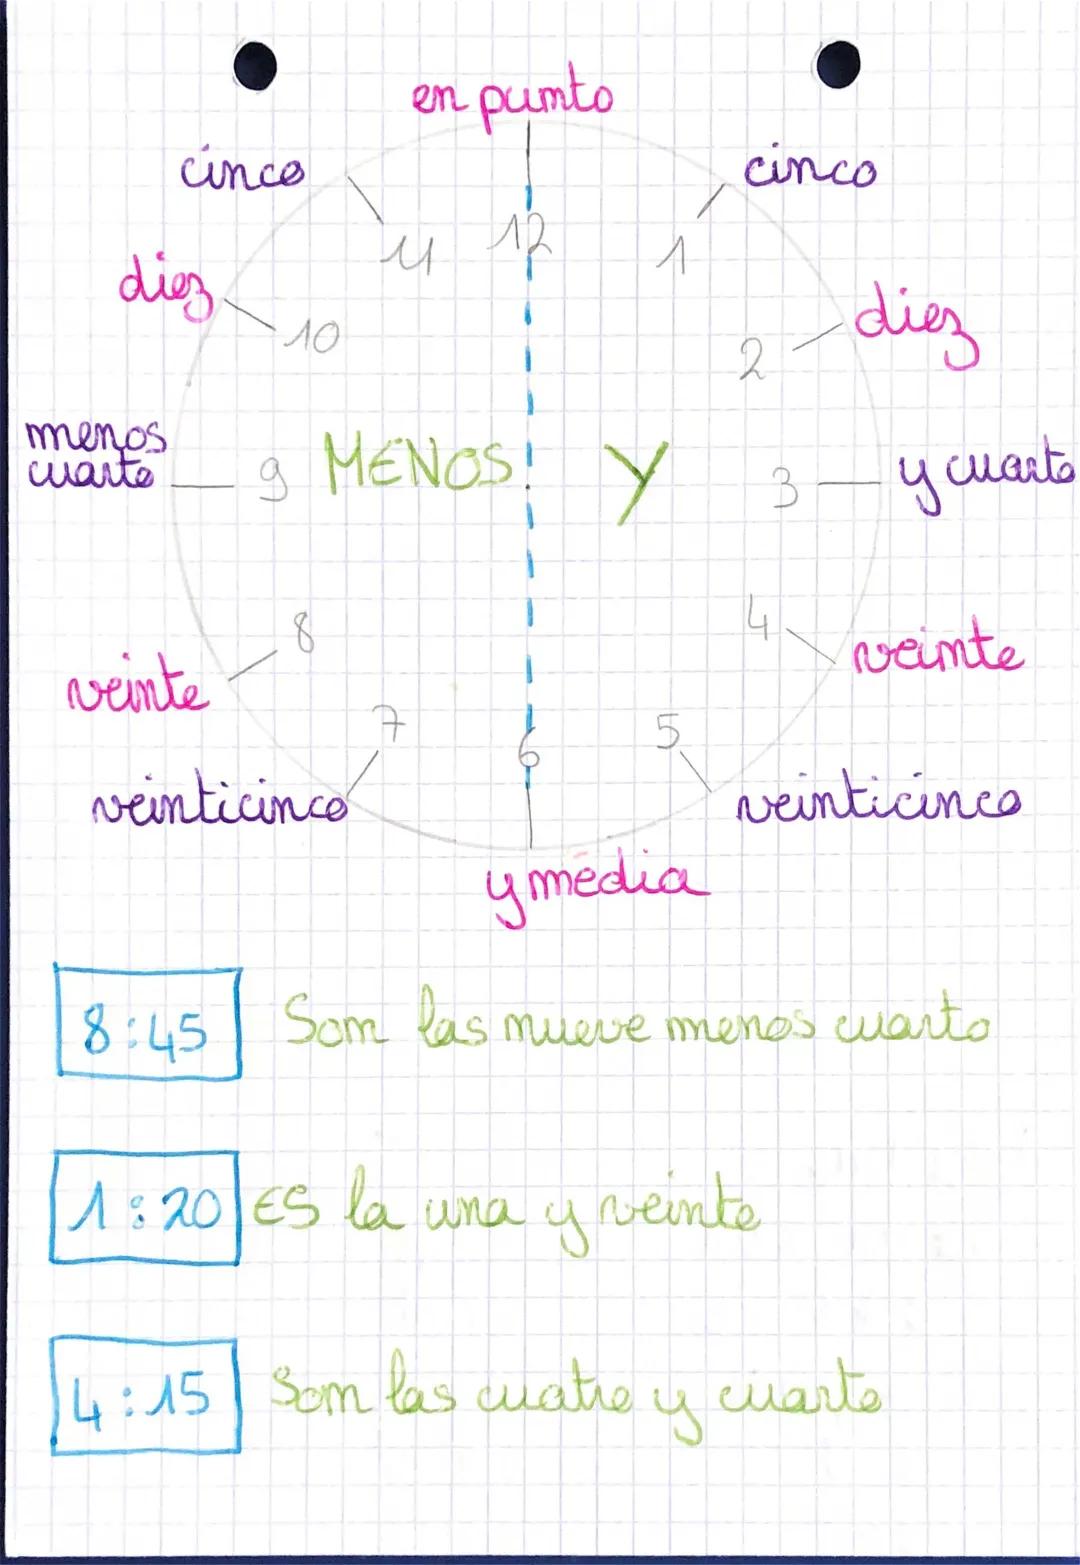 en punto
cinco
cinco
11
12
1
diez
diez
10
2
menos
cuarto
9
MENOS
Y
3
y cuarto
8
4
veinte
veinte
7
6
5
veinticinco
veinticinco
y media
8:45
Son las nueve menos cuarto
1:20
ES la una y veinte
4:15
Son las cuatro y cuarto